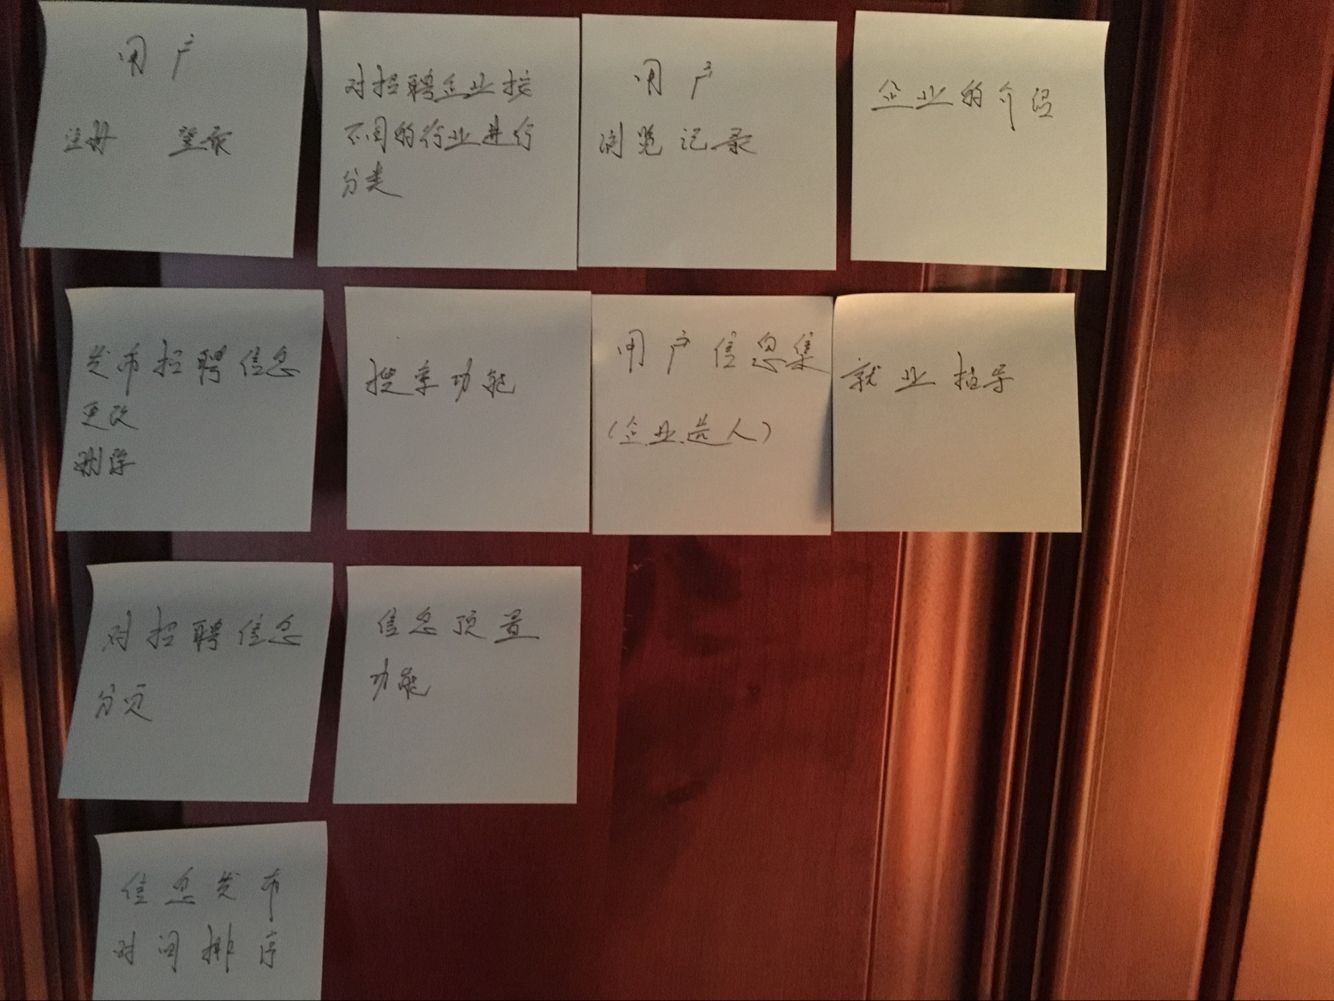 用户
注册 登录
对招聘企业按
不同的行业进行
分类
用户
浏览记录
企业的介绍
发布招聘信息
更改
删除
搜索功能
用户信息集
(企业选人)
就业指导
对招聘信息
分页
信息顶置
功能
信息发布
时间排序